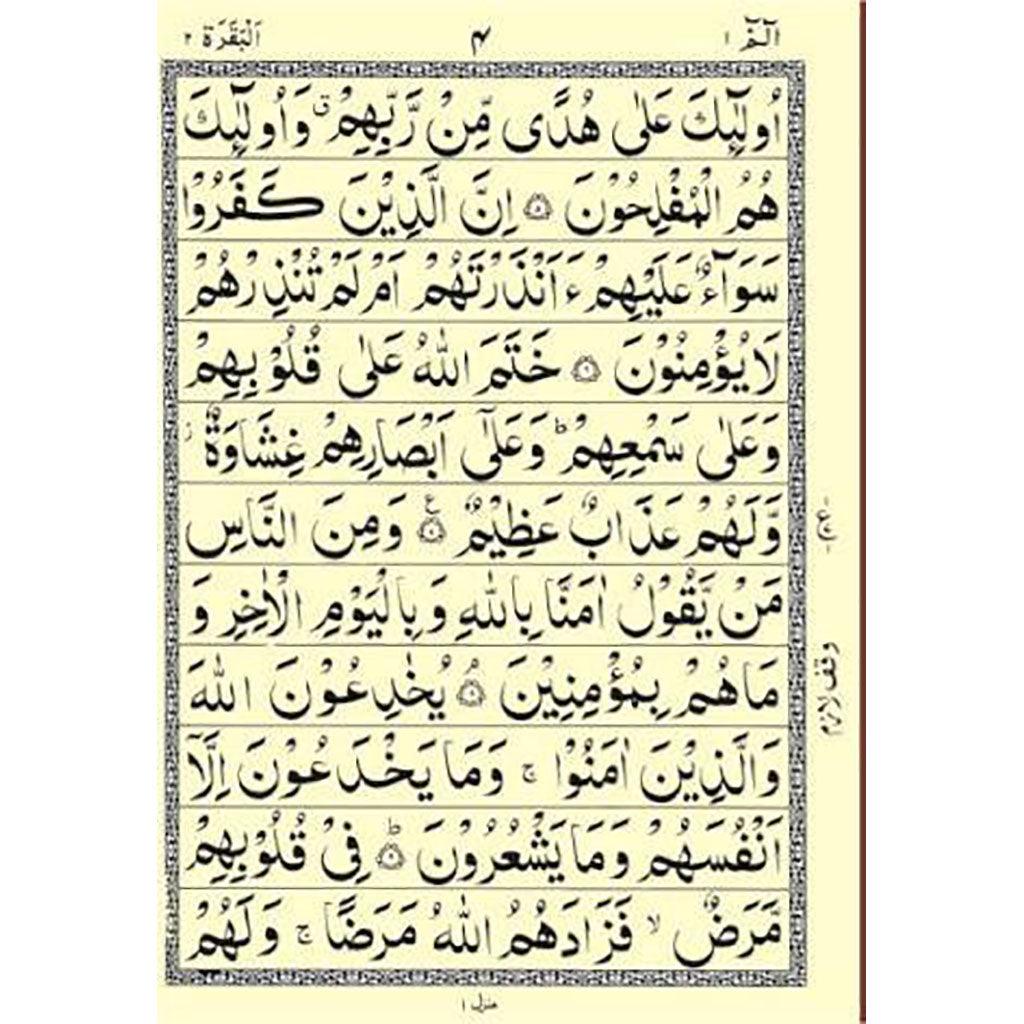 الٓـمّٓ ۱ ۴ اَلْبَقَرَة ۲
اُولٰٓئِكَ عَلٰى هُدًى مِّنْ رَّبِّهِمْ ۗ وَاُولٰٓئِكَ
هُمُ الْمُفْلِحُوْنَ ﴿۵﴾ اِنَّ الَّذِيْنَ كَفَرُوْا
سَوَآءٌ عَلَيْهِمْ ءَاَنْذَرْتَهُمْ اَمْ لَمْ تُنْذِرْهُمْ
لَا يُؤْمِنُوْنَ ﴿۶﴾ خَتَمَ اللّٰهُ عَلٰى قُلُوْبِهِمْ
وَعَلٰى سَمْعِهِمْ ؕ وَعَلٰٓى اَبْصَارِهِمْ غِشَاوَةٌ ز
وَّلَهُمْ عَذَابٌ عَظِيْمٌ ﴿۷﴾ ع وَمِنَ النَّاسِ
مَنْ يَّقُوْلُ اٰمَنَّا بِاللّٰهِ وَبِالْيَوْمِ الْاٰخِرِ وَ
مَا هُمْ بِمُؤْمِنِيْنَ ﴿۸﴾ ۘ يُخٰدِعُوْنَ اللّٰهَ
وَالَّذِيْنَ اٰمَنُوْا ۚ وَمَا يَخْدَعُوْنَ اِلَّاۤ
اَنْفُسَهُمْ وَمَا يَشْعُرُوْنَ ﴿۹﴾ ؕ فِيْ قُلُوْبِهِمْ
مَّرَضٌ ۙ فَزَادَهُمُ اللّٰهُ مَرَضًا ۚ وَلَهُمْ
ع
وقف لازم
منزل ۱